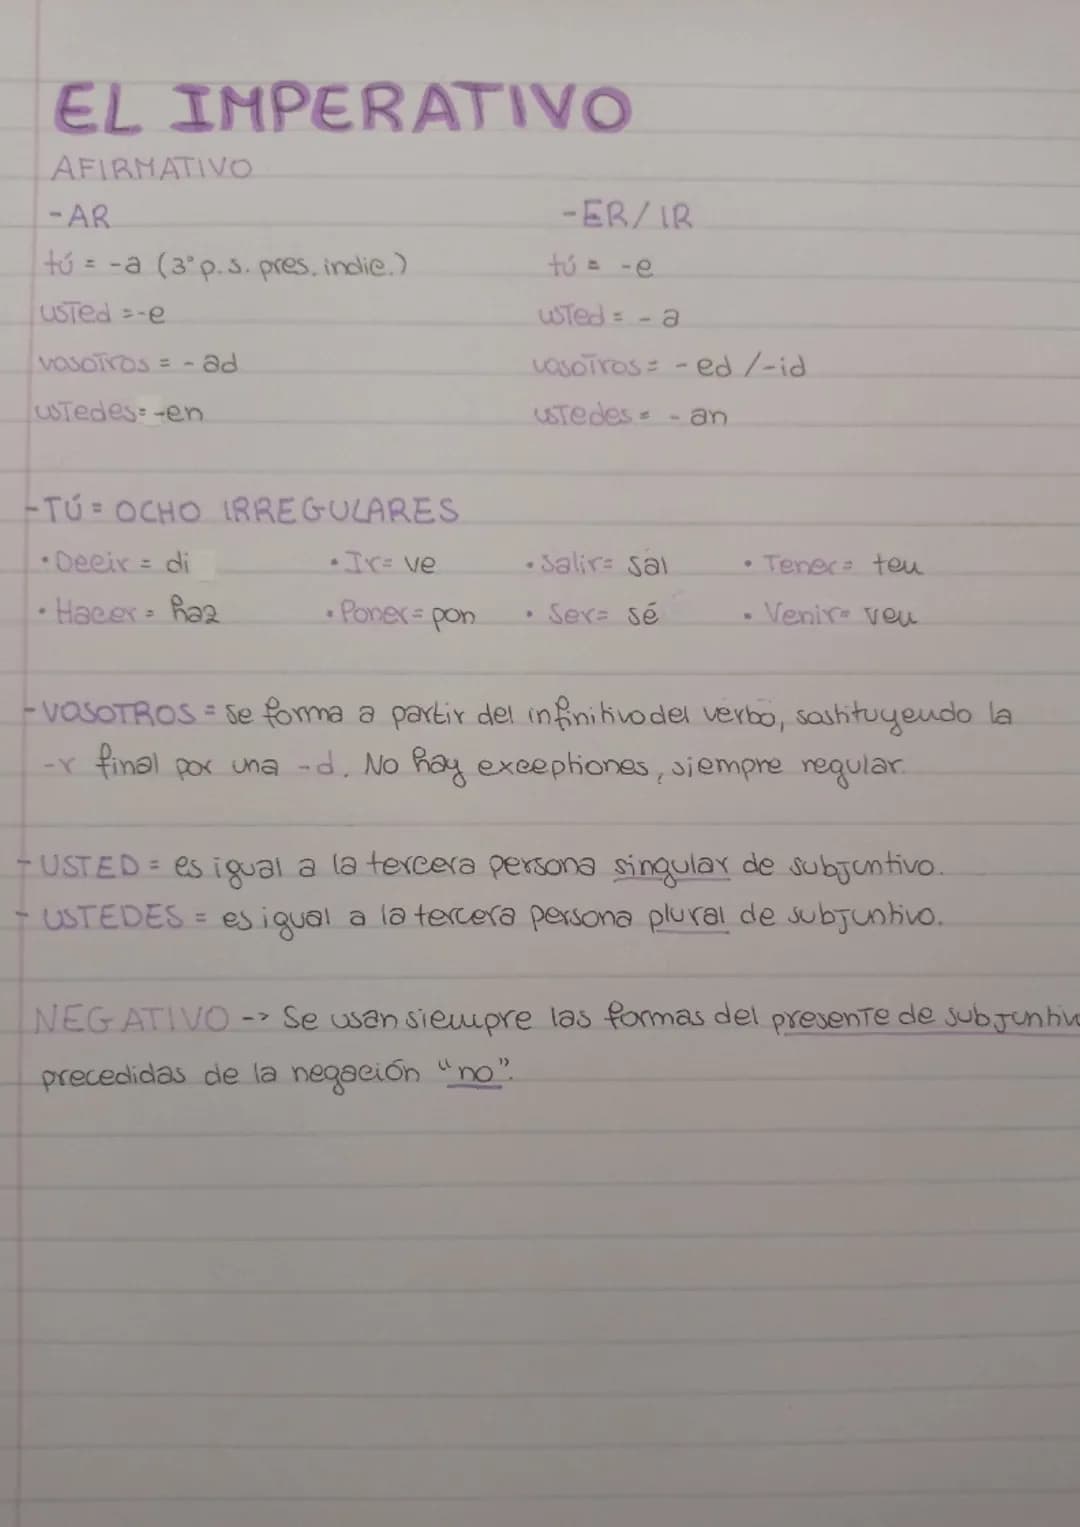 EL IMPERATIVO
AFIRMATIVO
-AR -ER/IR
tú = -a (3ª p.s. pres. indic.) tú = -e
usted = -e usted = -a
vosotros = -ad vosotros = -ed /-id
ustedes = -en ustedes = -an
-TÚ = OCHO IRREGULARES
• Decir = di • Ir = ve • Salir = sal • Tener = ten
• Hacer = haz • Poner = pon • Ser = sé • Venir = ven
-VOSOTROS = se forma a partir del infinitivo del verbo, sostituyendo la
-r final por una -d. No hay exceptiones, siempre regular.
-USTED = es igual a la tercera persona singular de subjuntivo.
-USTEDES = es igual a la tercera persona plural de subjuntivo.
NEGATIVO -> Se usan siempre las formas del presente de subjuntiv
precedidas de la negación "no".